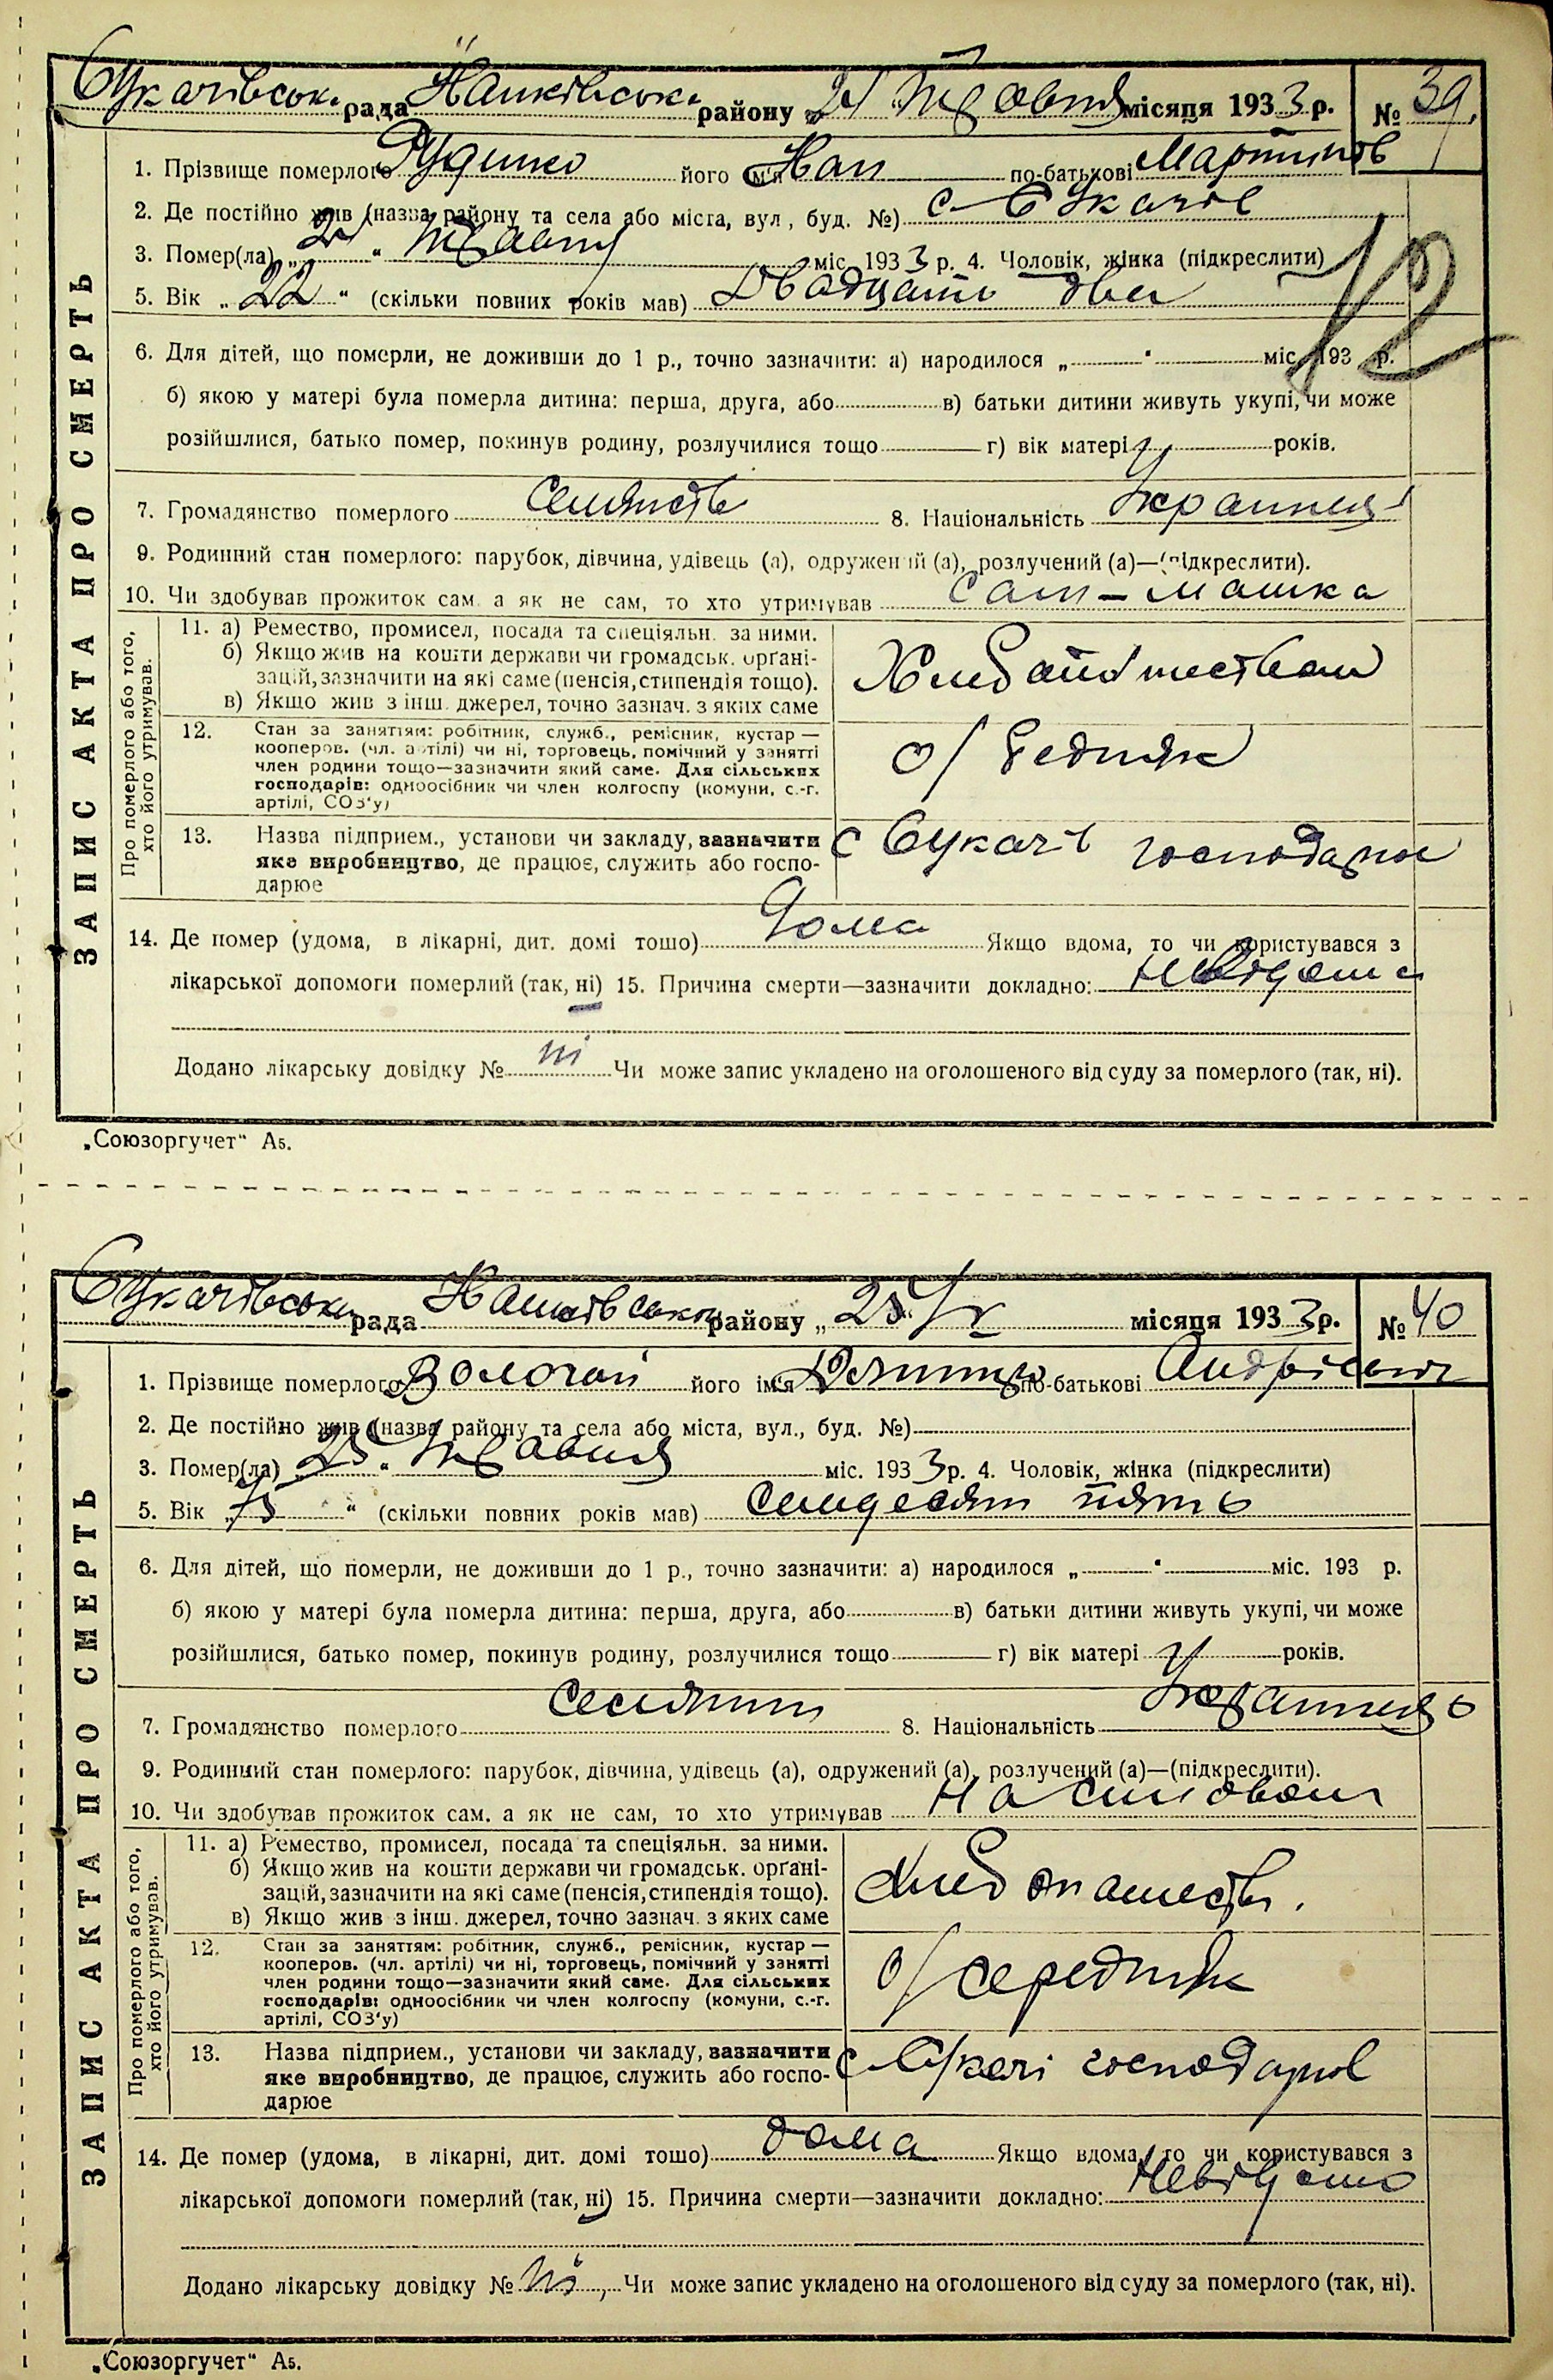 Сукачівськ. рада Іванківськ. району „24 Травня місяця 1933 р. № 39.
1. Прізвище померлого Руденко його ім'я Іван по-батькові Мартинов
2. Де постійно жив (назва району та села або міста, вул., буд. №) с. Сукачів
3. Помер(ла) „24“ Травня міс. 1933 р. 4. Чоловік, жінка (підкреслити)
5. Вік „22“ (скільки повних років мав) Двадцать два
12
6. Для дітей, що померли, не доживши до 1 р., точно зазначити: а) народилося „ “ міс. 193 р.
б) якою у матері була померла дитина: перша, друга, або в) батьки дитини живуть укупі, чи може
розійшлися, батько помер, покинув родину, розлучилися тощо г) вік матері років.
7. Громадянство померлого 8. Національність Украинець
9. Родинний стан померлого: парубок, дівчина, удівець (а), одружений (а), розлучений (а)—(підкреслити).
10. Чи здобував прожиток сам. а як не сам, то хто утримував
11. а) Ремество, промисел, посада та спеціяльн. за ними.
б) Якщо жив на кошти держави чи громадськ. орґані-
зацій, зазначити на які саме (пенсія, стипендія тощо).
в) Якщо жив з інш. джерел, точно зазнач. з яких саме
12. Стан за заняттям: робітник, служб., ремісник, кустар—
кооперов. (чл. артілі) чи ні, торговець, помічний у занятті
член родини тощо—зазначити який саме. Для сільських
господарів: одноосібник чи член колгоспу (комуни, с.-г.
артілі, СОЗ'у)
о/ бедняк
13. Назва підприєм., установи чи закладу, зазначити
яке виробництво, де працює, служить або госпо-
дарює
с Сукачів господарює
14. Де помер (удома, в лікарні, дит. домі тощо) Дома Якщо вдома, то чи користувався з
лікарської допомоги померлий (так, ні) 15. Причина смерти—зазначити докладно: невідома
Додано лікарську довідку № ні Чи може запис укладено на оголошеного від суду за померлого (так, ні).
ЗАПИС АКТА ПРО СМЕРТЬ
Про померлого або того,
хто його утримував.
„Союзоргучет“ А5.
Сукачівськ. рада Іванківськ. району „25/V місяця 1933 р. № 40
1. Прізвище померлого його ім'я по-батькові Андрієвич
2. Де постійно жив (назва району та села або міста, вул., буд. №)
3. Помер(ла) „25“ Травня міс. 1933 р. 4. Чоловік, жінка (підкреслити)
5. Вік „75“ (скільки повних років мав) Семдесят пять
6. Для дітей, що померли, не доживши до 1 р., точно зазначити: а) народилося „ “ міс. 193 р.
б) якою у матері була померла дитина: перша, друга, або в) батьки дитини живуть укупі, чи може
розійшлися, батько помер, покинув родину, розлучилися тощо г) вік матері років.
7. Громадянство померлого Селянин 8. Національність Украинець
9. Родинний стан померлого: парубок, дівчина, удівець (а), одружений (а), розлучений (а)—(підкреслити).
10. Чи здобував прожиток сам. а як не сам, то хто утримував
11. а) Ремество, промисел, посада та спеціяльн. за ними.
б) Якщо жив на кошти держави чи громадськ. орґані-
зацій, зазначити на які саме (пенсія, стипендія тощо).
в) Якщо жив з інш. джерел, точно зазнач. з яких саме
12. Стан за заняттям: робітник, служб., ремісник, кустар—
кооперов. (чл. артілі) чи ні, торговець, помічний у занятті
член родини тощо—зазначити який саме. Для сільських
господарів: одноосібник чи член колгоспу (комуни, с.-г.
артілі, СОЗ'у)
о/ середняк
13. Назва підприєм., установи чи закладу, зазначити
яке виробництво, де працює, служить або госпо-
дарює
14. Де помер (удома, в лікарні, дит. домі тощо) дома Якщо вдома, то чи користувався з
лікарської допомоги померлий (так, ні) 15. Причина смерти—зазначити докладно: невідомо
Додано лікарську довідку № ні, Чи може запис укладено на оголошеного від суду за померлого (так, ні).
ЗАПИС АКТА ПРО СМЕРТЬ
Про померлого або того,
хто його утримував.
„Союзоргучет“ А5.